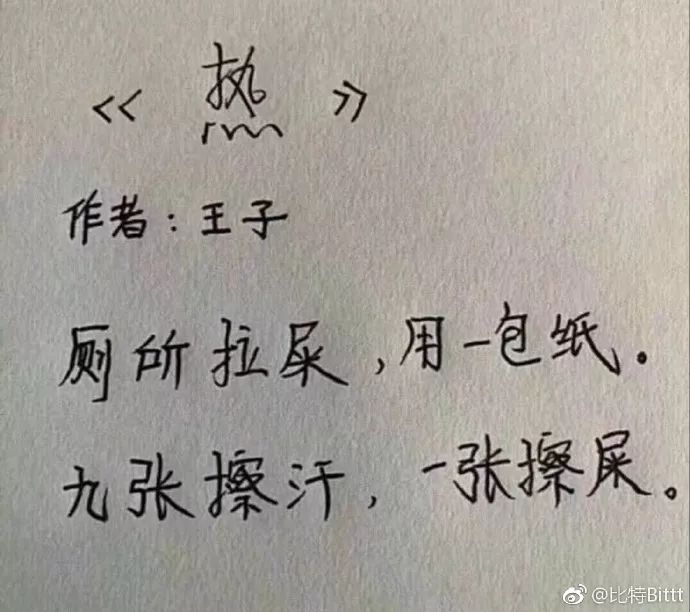 《热》
作者：王子
厕所拉屎，用一包纸。
九张擦汗，一张擦屎。
@比特Bittt